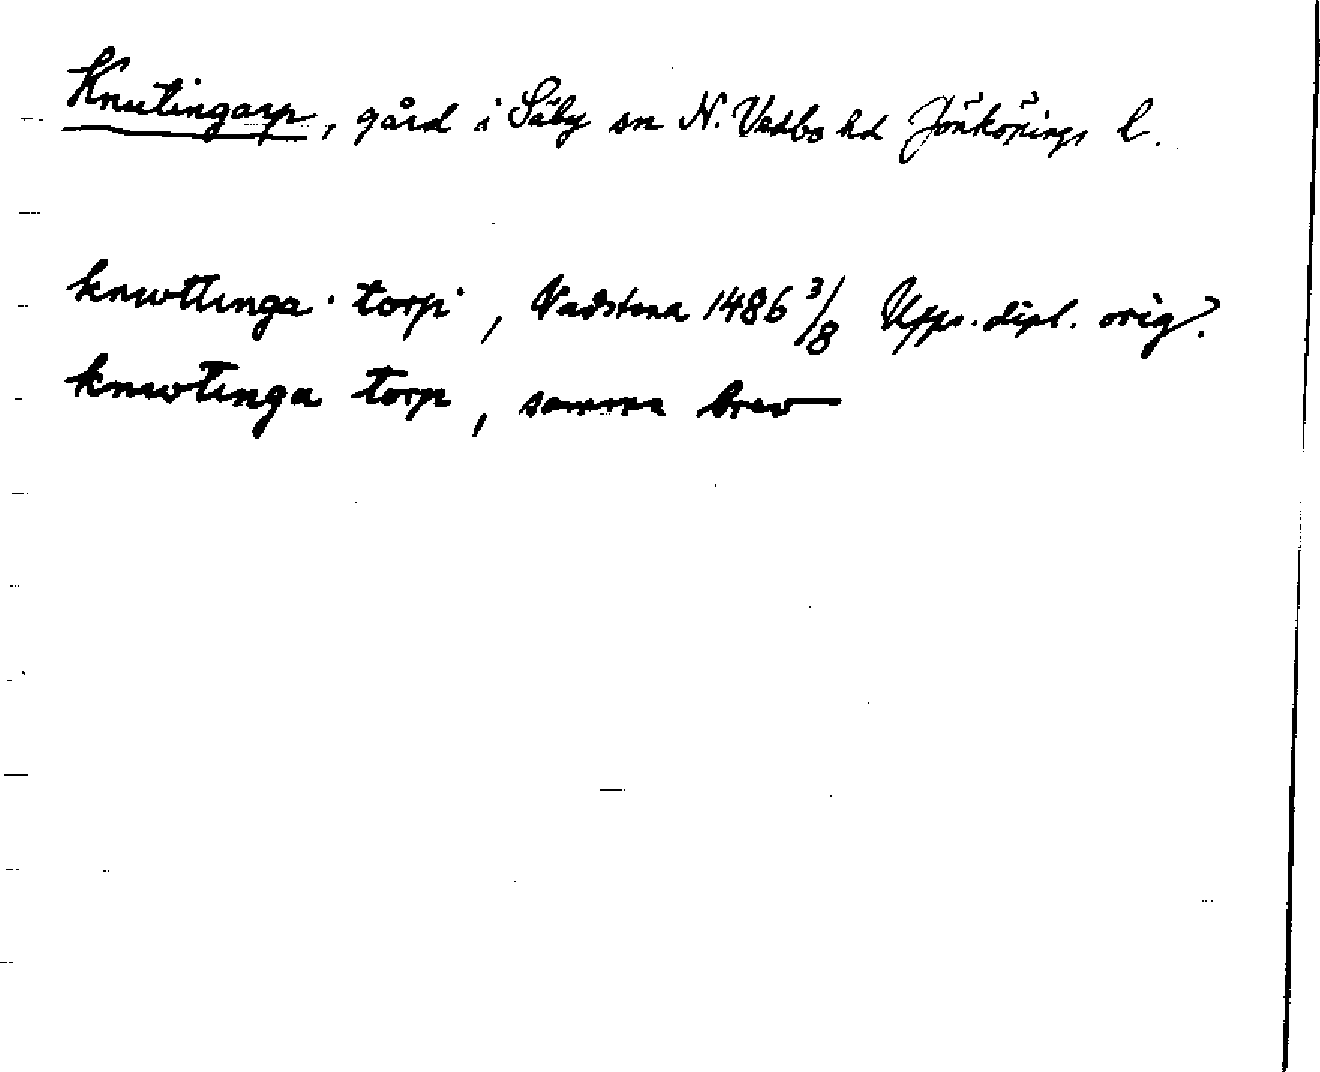 Knutingarp, gård i Säby sn N. Vedbo hd Jönköpings l.
knwttinga torp, Vadstena 1486 3/8 Upps. dipl. orig?
knwtinga torp, samma brev